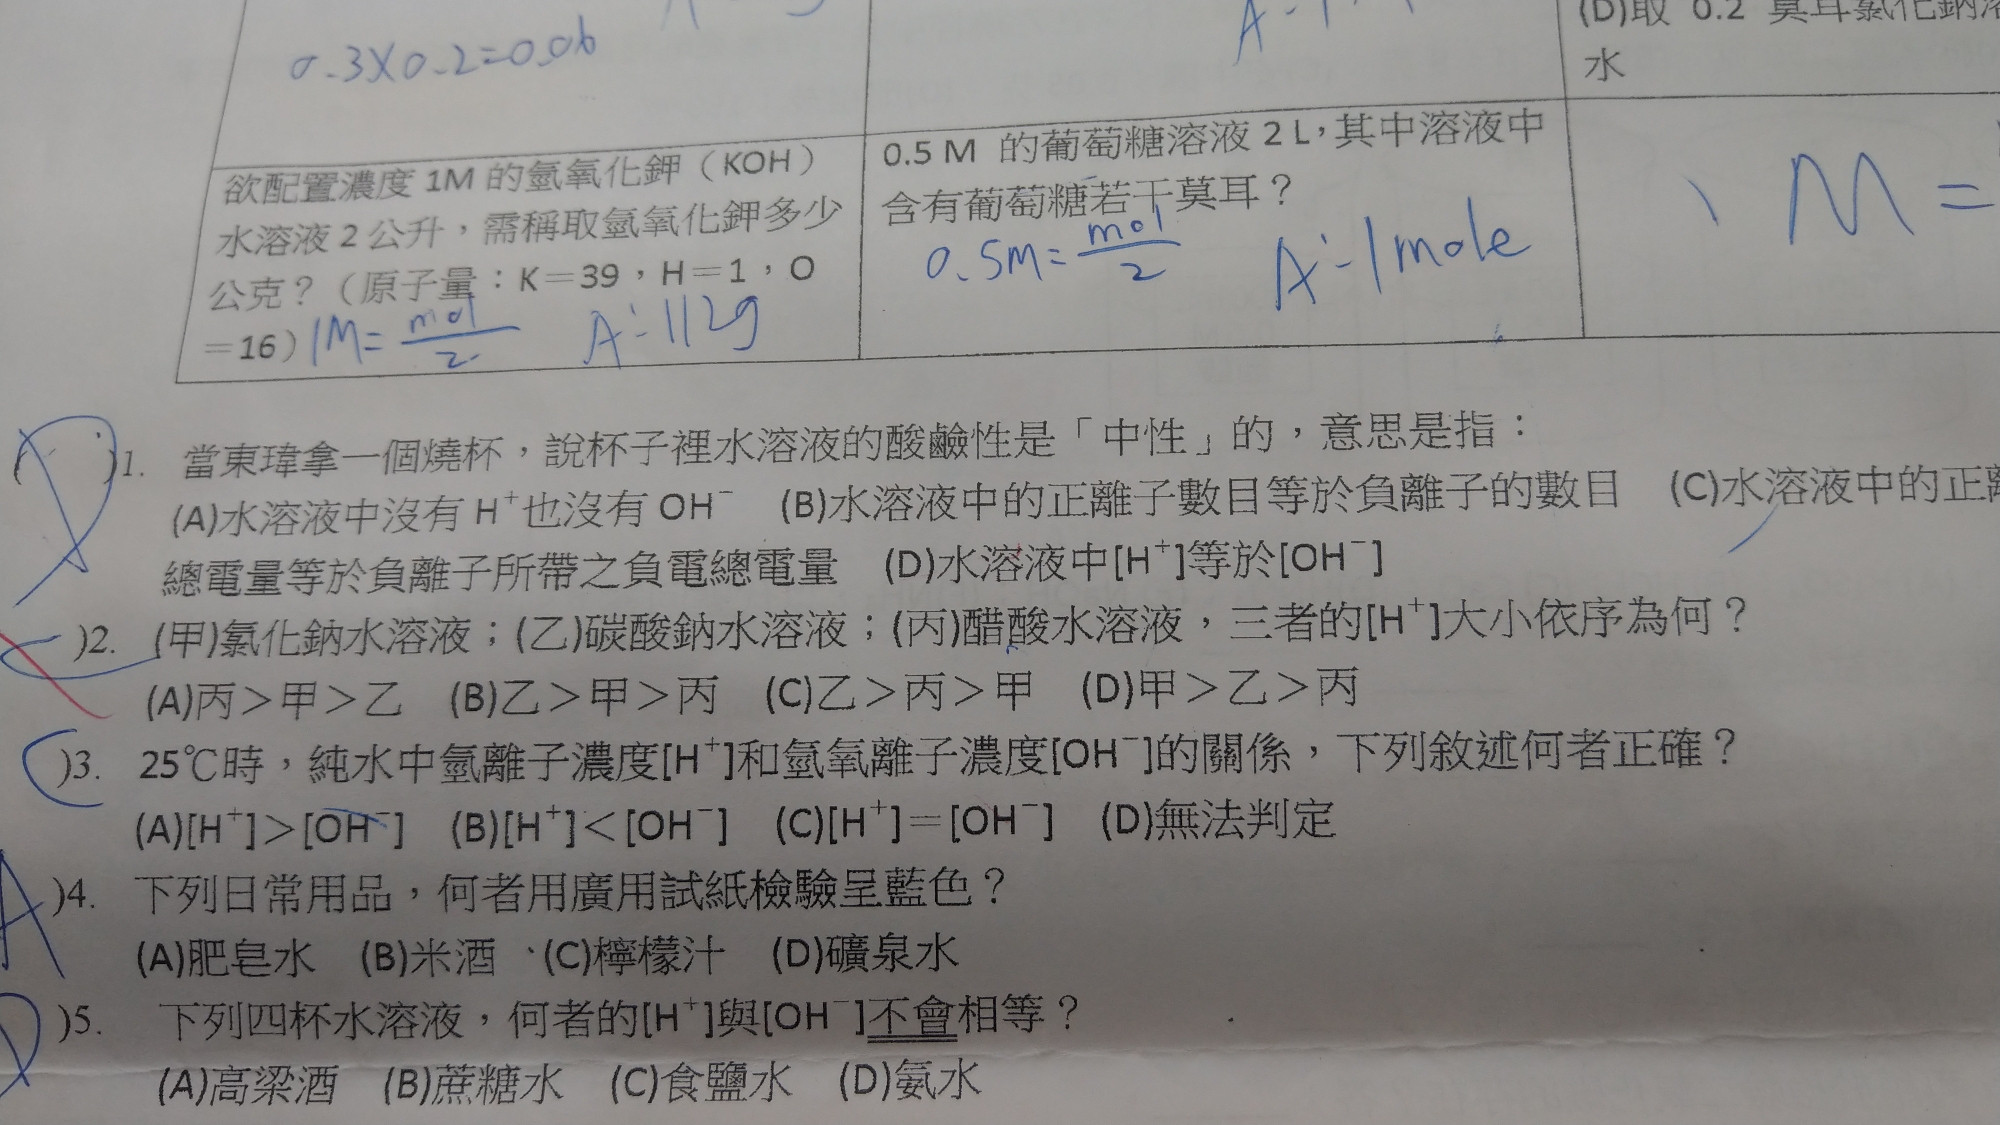 (D)取 0.2 莫耳氯化鈉
水
0.3X0.2=0.06
欲配置濃度 1M 的氫氧化鉀（KOH）
水溶液 2 公升，需稱取氫氧化鉀多少
公克？（原子量：K＝39，H＝1，O
＝16）1M= mol/2 A:112g
0.5 M 的葡萄糖溶液 2 L，其中溶液中
含有葡萄糖若干莫耳？
0.5M= mol/2 A:1mole
M=
D )1. 當東瑋拿一個燒杯，說杯子裡水溶液的酸鹼性是「中性」的，意思是指：
(A)水溶液中沒有 H⁺也沒有 OH⁻ (B)水溶液中的正離子數目等於負離子的數目 (C)水溶液中的正離
總電量等於負離子所帶之負電總電量 (D)水溶液中[H⁺]等於[OH⁻]
C )2. (甲)氯化鈉水溶液；(乙)碳酸鈉水溶液；(丙)醋酸水溶液，三者的[H⁺]大小依序為何？
(A)丙＞甲＞乙 (B)乙＞甲＞丙 (C)乙＞丙＞甲 (D)甲＞乙＞丙
C )3. 25℃時，純水中氫離子濃度[H⁺]和氫氧離子濃度[OH⁻]的關係，下列敘述何者正確？
(A)[H⁺]＞[OH⁻] (B)[H⁺]＜[OH⁻] (C)[H⁺]＝[OH⁻] (D)無法判定
A )4. 下列日常用品，何者用廣用試紙檢驗呈藍色？
(A)肥皂水 (B)米酒 (C)檸檬汁 (D)礦泉水
D )5. 下列四杯水溶液，何者的[H⁺]與[OH⁻]不會相等？
(A)高梁酒 (B)蔗糖水 (C)食鹽水 (D)氨水